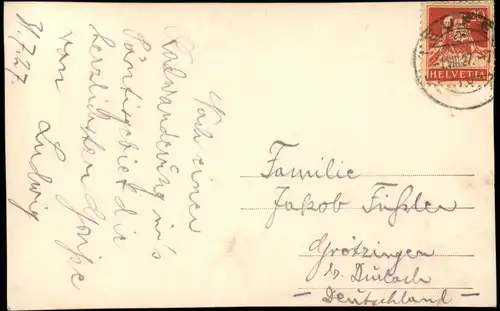 8.7.27.
Nach einer
Radwanderung in's
Säntisgebiet die
herzlichsten Grüße
von Ludwig
20
HELVETIA
Familie
Jakob Füßler
Grötzingen
b. Durlach
— Deutschland —